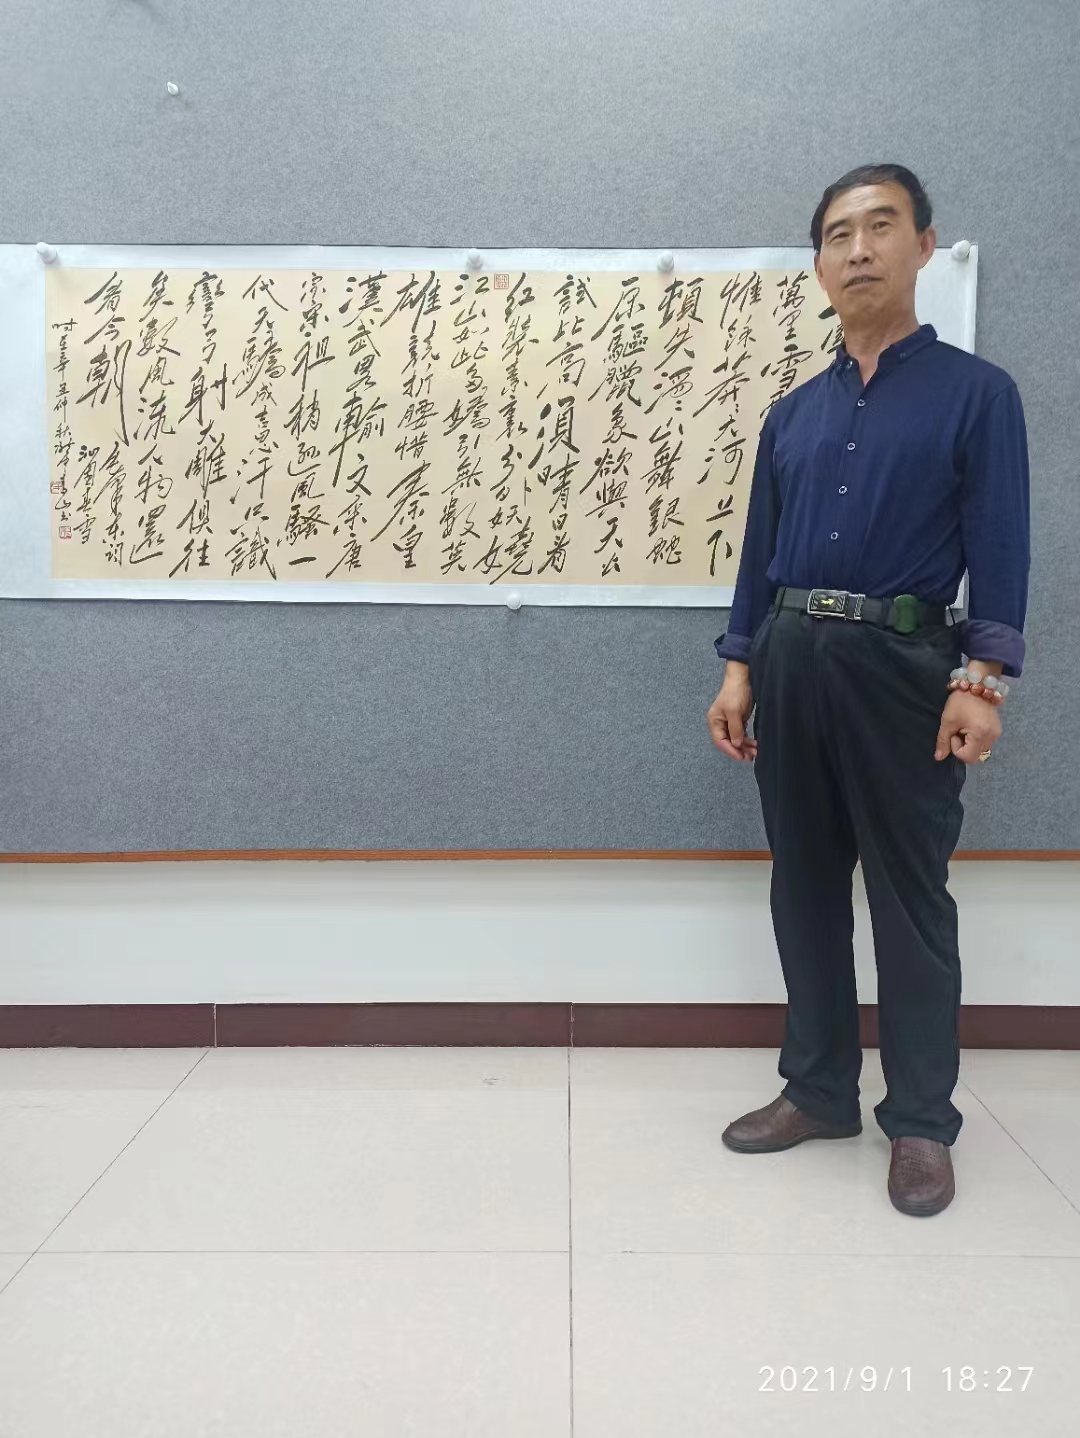 萬里雪
惟餘莽々大河上下
頓失滔々山舞銀蛇
原驅臘象欲與天公
試比高須晴日看
紅裝素裹分外妖嬈
江山如此多嬌引無數英
雄競折腰惜秦皇
漢武畧輸文采唐
宗宋祖稍遜風騷一
代天驕成吉思汗只識
彎弓射大雕俱往
矣數風流人物還
看今朝 毛澤東詞
沁園春雪
時在辛丑仲秋 青山书
2021/9/1 18:27